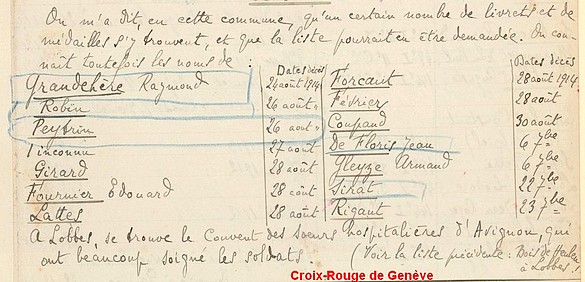 On m'a dit, en cette commune, qu'un certain nombre de livrets et de
médailles s'y trouvent, et que la liste pourrait en être demandée. On con-
naît toutefois les noms de :
Dates décès
Grandchère Raymond 24 août 1914
Robin 26 août "
Peybrin 26 août "
1 inconnu 27 août
Girard 28 août
Fournier Edouard 28 août
Lattes 28 août
Dates décès
Forcaut 28 août 1914
Février 28 août
Coupaud 30 août
De Floris Jean 6 7bre
Gleyze Armand 6 7bre
Sirat 22 7bre
Rigaut 23 7bre
A Lobbes, se trouve le Couvent des sœurs hospitalières d'Avignon, qui
ont beaucoup soigné les soldats. (Voir la liste précédente : Bois de
à Lobbes.
Croix-Rouge de Genève